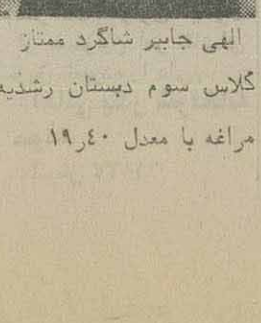 الهی جابیر شاگرد ممتاز
کلاس سوم دبستان رشدیه
مراغه با معدل ۱۹٫۴۰